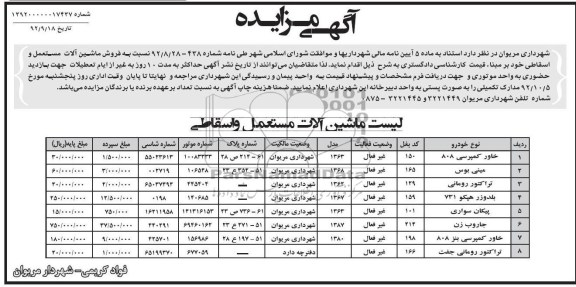 شماره ۱۳۹۲۰۰۰۰۰۰۱۷۴۳۷
تاریخ ۹۲/۹/۱۸
آگهی مزایده
شهرداری مریوان در نظر دارد استناد به ماده ۵ آیین نامه مالی شهرداریها و موافقت شورای اسلامی شهر طی نامه شماره ۴۳۸ - ۹۲/۸/۲۸ نسبت به فروش ماشین آلات مستعمل و
اسقاطی خود بر مبنا، قیمت کارشناسی دادگستری به شرح ذیل اقدام نماید. لذا متقاضیان می‌توانند از تاریخ نشر آگهی حداکثر به مدت ۱۰ روز به غیر از ایام تعطیلات جهت بازدید
حضوری به واحد موتوری و جهت دریافت فرم مشخصات و پیشنهاد قیمت به واحد پیمان و رسیدگی این شهرداری مراجعه و نهایتا تا پایان وقت اداری روز پنجشنبه مورخ
۹۲/۱۰/۵ مدارک تکمیلی را به صورت پستی به واحد دبیرخانه این شهرداری اعلام نمایید. ضمنا هزینه چاپ آگهی به نسبت تعداد بر عهده برنده یا برندگان مزایده می‌باشد.
شماره تلفن شهرداری مریوان ۳۲۲۱۴۴۹ و ۳۲۲۱۴۴۵ - ۰۸۷۵
لیست ماشین آلات مستعمل واسقاطی
ردیف نوع خودرو کد بغل وضعیت فعالیت مدل وضعیت مالکیت شماره پلاک شماره موتور شماره شاسی مبلغ سپرده مبلغ پایه(ریال)
۱ خاور کمپرسی ۸۰۸ ۱۵۰ غیر فعال ۱۳۶۳ شهرداری مریوان ۶۱ - ۲۱۴ ص ۲۸ ۱۰۰۸۳۳۳ ۵۵۰۲۳۶۱۳ ۱/۵۰۰/۰۰۰ ۳۰/۰۰۰/۰۰۰
۲ مینی بوس ۱۶۵ غیر فعال ۱۳۶۸ شهرداری مریوان ۵۱ - ۳۵۲ ع ۲۳ ۱۰۶۵۳۸ ۰۰۲۷۱۹ ۳/۰۰۰/۰۰۰ ۶۰/۰۰۰/۰۰۰
۳ تراکتور رومانی ۱۲۹ غیر فعال ۱۳۶۲ شهرداری مریوان — ۲۲۵۲۰۲ ۶۵۰۳۷۴۹۳ ۲/۰۰۰/۰۰۰ ۴۰/۰۰۰/۰۰۰
۴ بلدوزر هپکو ۷۳۱ ۱۵۹ غیر فعال ۱۳۶۷ شهرداری مریوان — ۱۲۰۶۸۵ ۰۹۸ ۱۲/۵۰۰/۰۰۰ ۲۵۰/۰۰۰/۰۰۰
۵ پیکان سواری ۱۰۱ غیر فعال ۱۳۶۳ شهرداری مریوان ۶۱ - ۷۳۶ ص ۲۳ ۱۲۱۳۱۶۱۵۳ ۱۶۴۱۱۹۵۸ ۷۵۰/۰۰۰ ۱۵/۰۰۰/۰۰۰
۶ جاروب زن ۲۱۲ غیر فعال ۱۳۸۷ شهرداری مریوان ۵۱ - ۲۷۱ ع ۲۳ ۶۹۴۶۰۱۶۲ ۴۲۰۲۹۱ ۳۷/۵۰۰/۰۰۰ ۷۵۰/۰۰۰/۰۰۰
۷ خاور کمپرسی بنز ۸۰۸ ۱۹۸ غیر فعال ۱۳۸۰ شهرداری مریوان ۵۱ - ۱۹۷ ع ۲۸ ۱۵۶۹۸۶ ۴۲۵۷۰۱ ۹/۰۰۰/۰۰۰ ۱۸۰/۰۰۰/۰۰۰
۸ تراکتور رومانی جفت ۱۶۶ غیر فعال دفترچه دارد ۶۷۷۰۵۹ ۶۵۱۹۹۳۷۰ ۱/۰۰۰/۰۰۰ ۲۰/۰۰۰/۰۰۰
فؤاد کریمی- شهردار مریوان